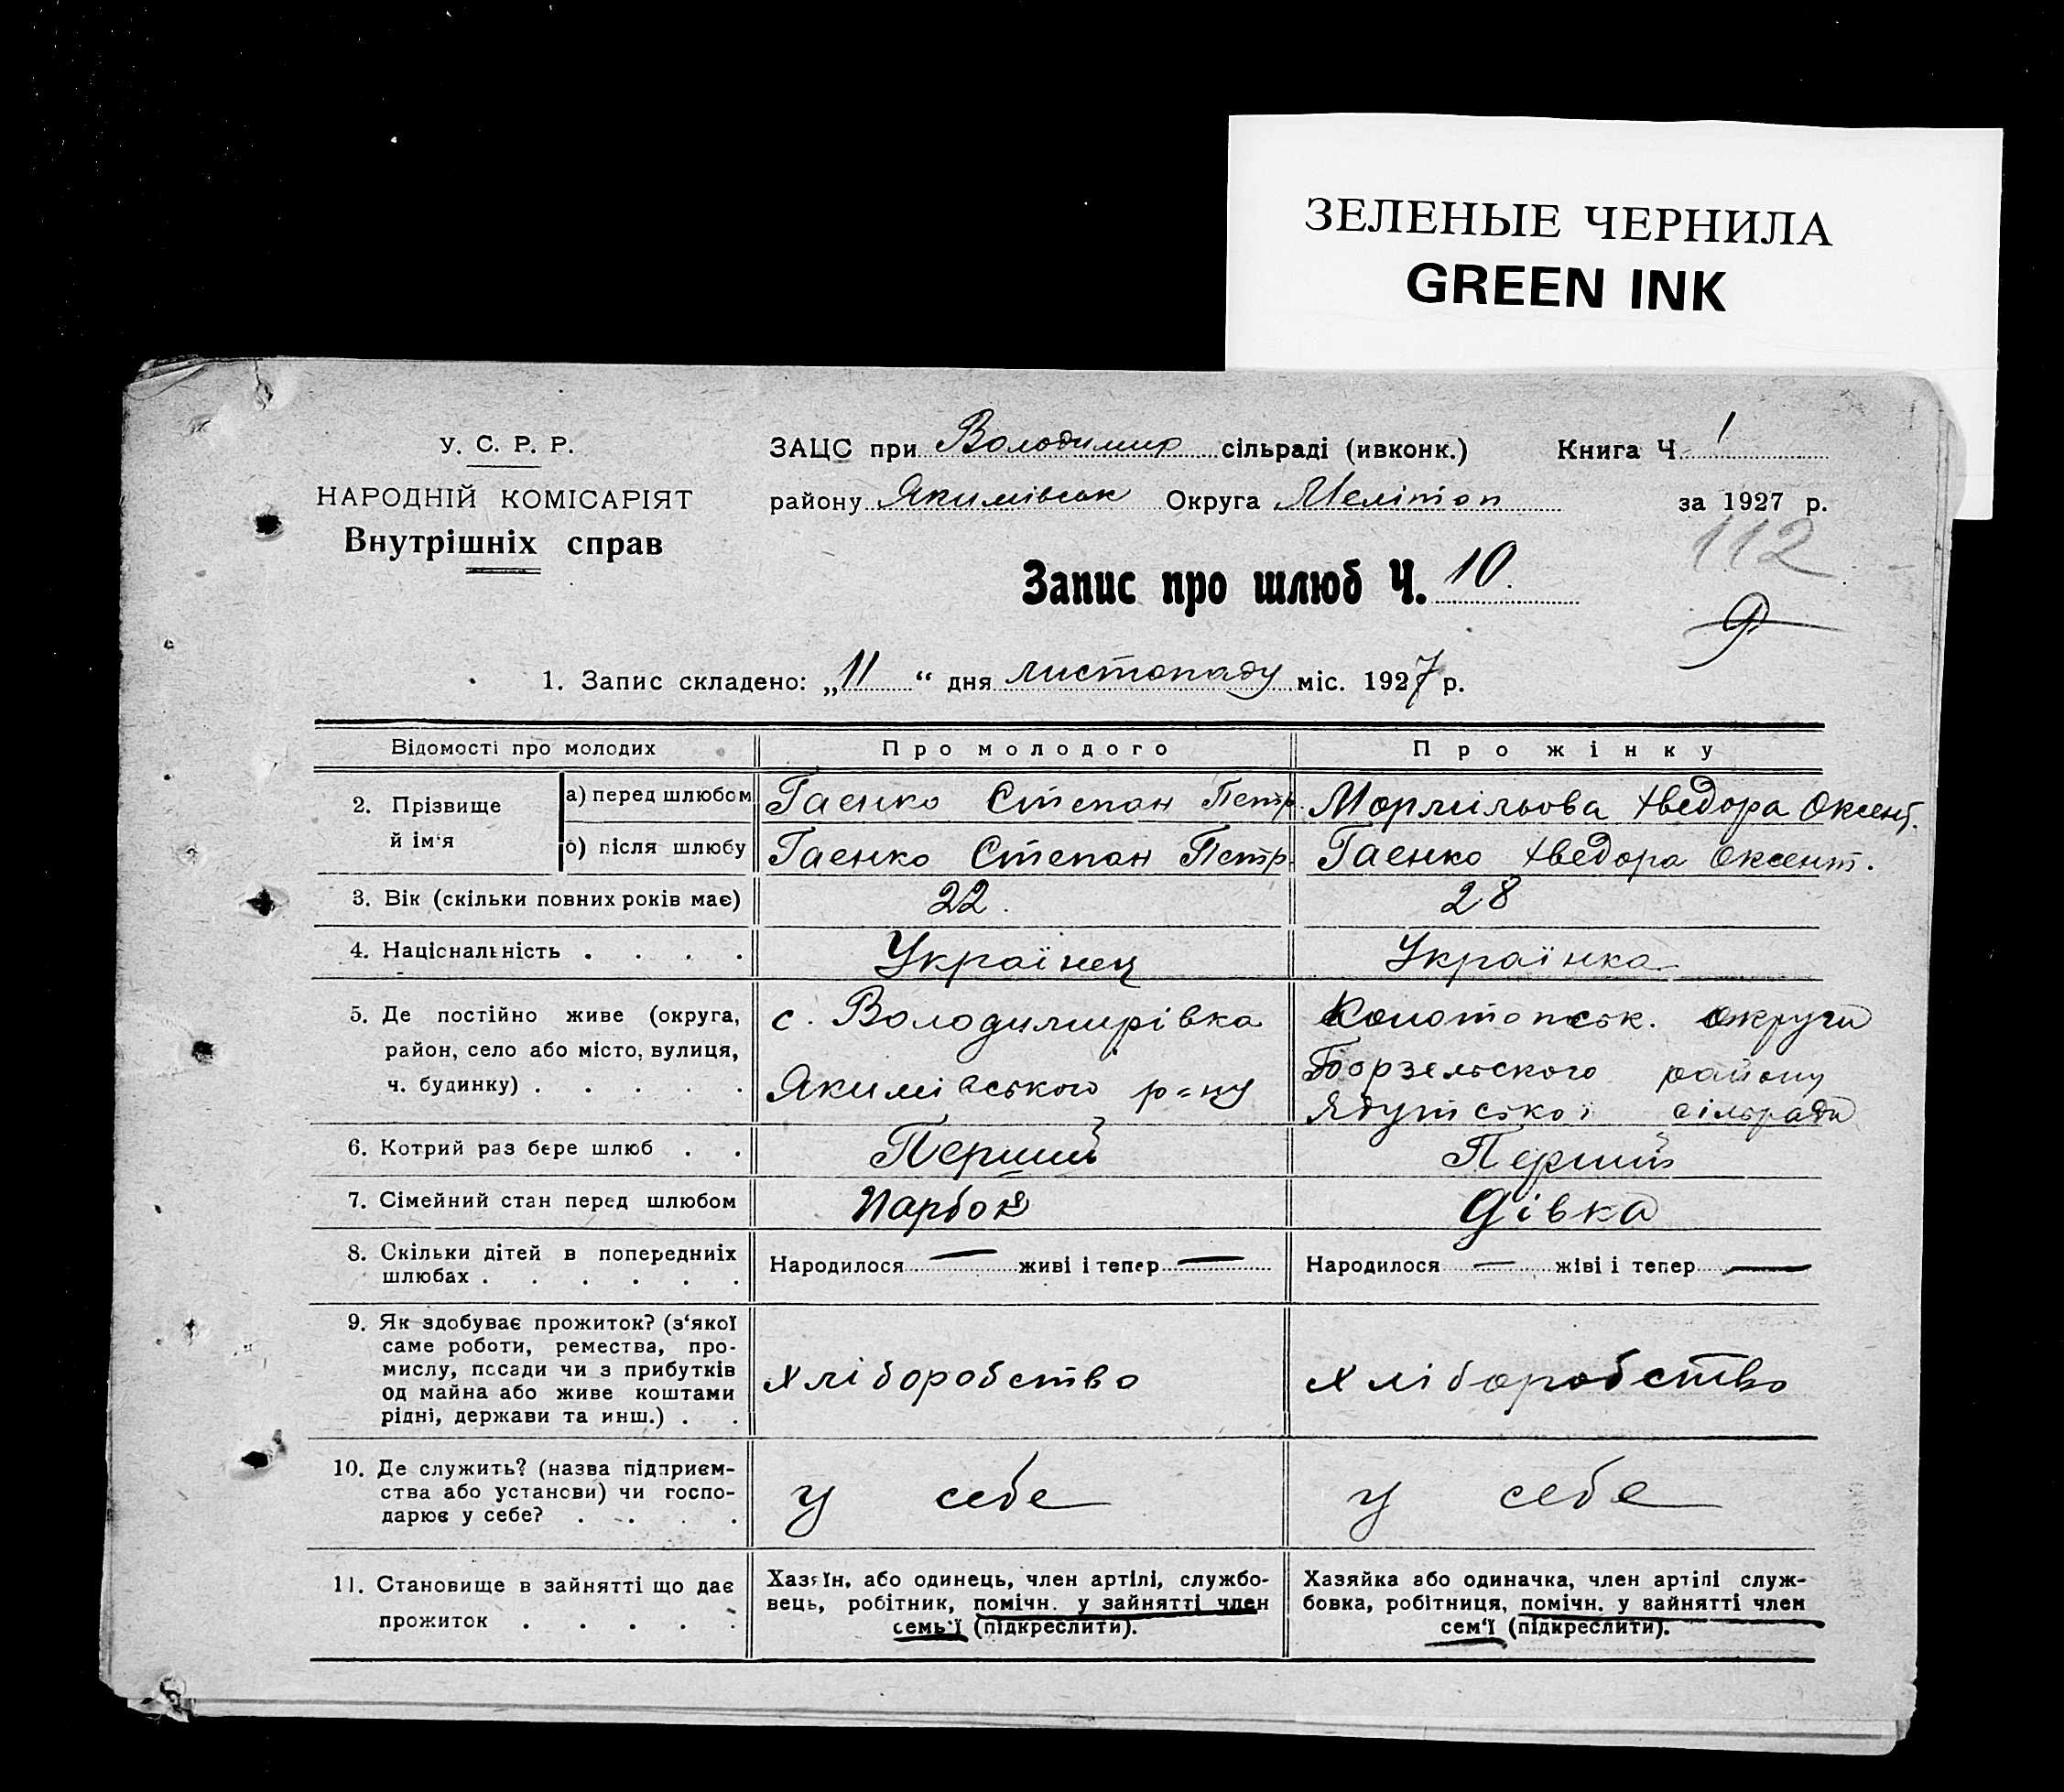 ЗЕЛЕНЫЕ ЧЕРНИЛА
GREEN INK
У. С. Р. Р.
НАРОДНІЙ КОМІСАРІЯТ
Внутрішніх справ
ЗАЦС при Володимир сільраді (ивконк.) Книга Ч 1
району Якимівськ Округа Мелітоп за 1927 р.
112
Запис про шлюб Ч. 10.
9
1. Запис складено: „11“ дня листопаду міс. 1927 р.
Відомості про молодих Про молодого Про жінку
2. Прізвище й ім'я
а) перед шлюбом Гаєнко Степан Петр. Мормильова Хведора Оксент.
б) після шлюбу Гаєнко Степан Петр. Гаєнко Хведора Оксент.
3. Вік (скільки повних років має) 22. 28
4. Національність . . . . Українец Українка
5. Де постійно живе (округа,
район, село або місто, вулиця,
ч. будинку) . . . . .
с. Володимирівка
Якимівського р=ну
Конотопськ. округи
Борзельського району
Ядутської сільради
6. Котрий раз бере шлюб . . Перший Перший
7. Сімейний стан перед шлюбом Парбок Дівка
8. Скільки дітей в попередниіх
шлюбах . . . . . .
Народилося — живі і тепер —
Народилося — жіві і тепер —
9. Як здобуває прожиток? (з'якої
саме роботи, ремества, про-
мислу, посади чи з прибутків
од майна або живе коштами
рідні, держави та инш.) . .
хліборобство
хліборобство
10. Де служить? (назва підприєм-
ства або установи) чи госпо-
дарює у себе? . . . .
у себе
у себе
11. Становище в зайнятті що дає
прожиток . . . . .
Хазяїн, або одинець, член артілі, службо-
вець, робітник, помічн. у зайнятті член
семь'ї (підкреслити).
Хазяйка або одиначка, член артілі служ-
бовка, робітниця, помічн. у зайнятті член
сем'ї (підкреслити).